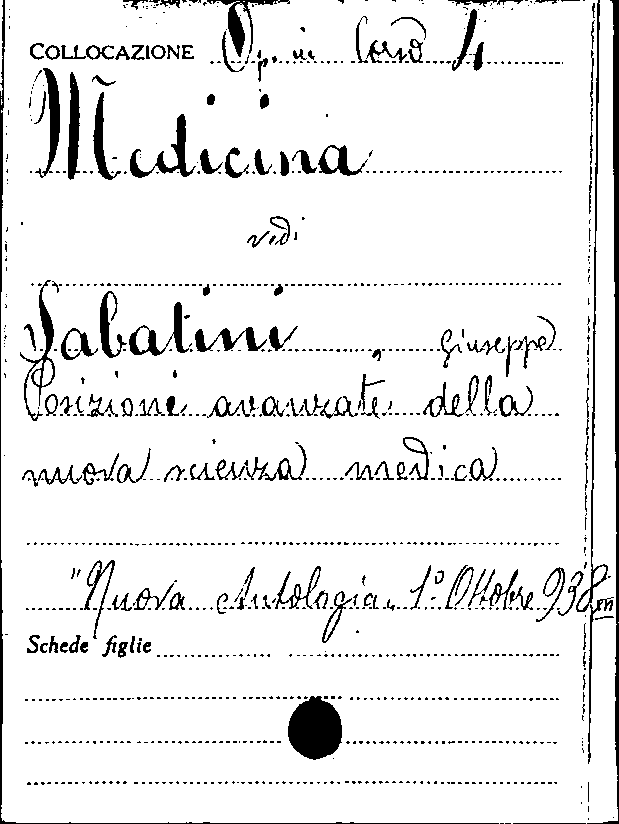 COLLOCAZIONE Op. in Corso 4
Medicina
vedi
Sabatini, Giuseppe
Posizioni avanzate della
nuova scienza medica
"Nuova Antologia. 1º Ottobre 938 XVI
Schede figlie